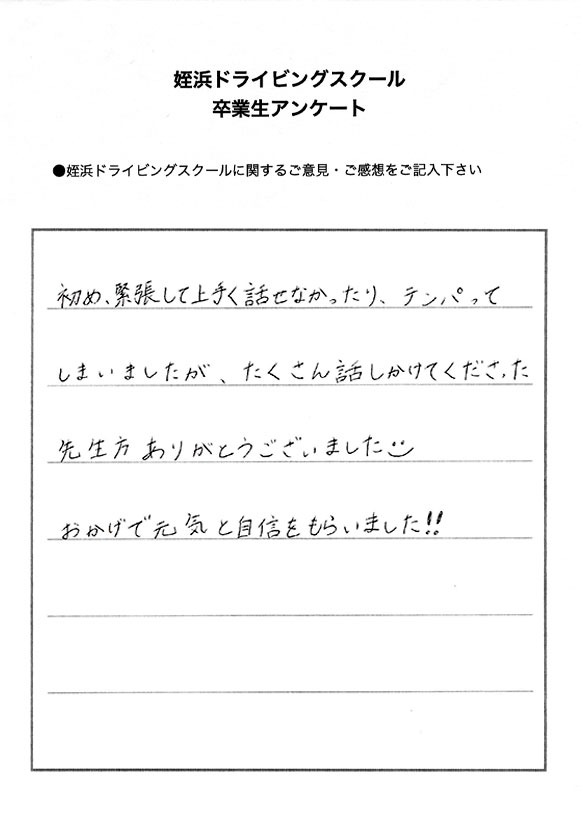 姪浜ドライビングスクール
卒業生アンケート
●姪浜ドライビングスクールに関するご意見・ご感想をご記入下さい
初め、緊張して上手く話せなかったり、テンパって
しまいましたが、たくさん話しかけてくださった
先生方ありがとうございました
おかげで元気と自信をもらいました!!